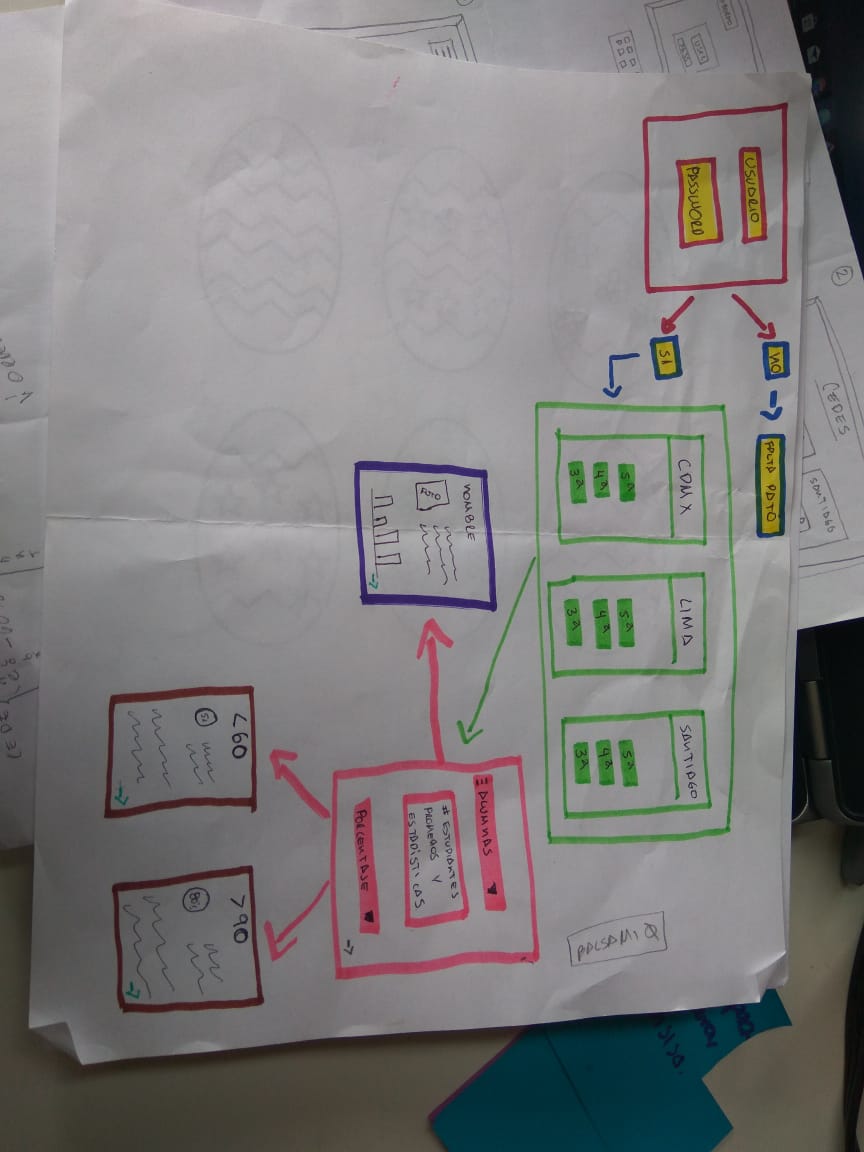 USUARIO
PASSWORD
NO
FALTA DATO
SI
CDMX
5a
4a
3a
LIMA
5a
4a
3a
SANTIAGO
5a
4a
3a
NOMBRE
ALUMNAS
# ESTUDIANTES
PROMEDIOS Y
ESTADÍSTICAS
PORCENTAJE
<60
>90
BALSAMIQ
2
CEDES
SANTIAGO